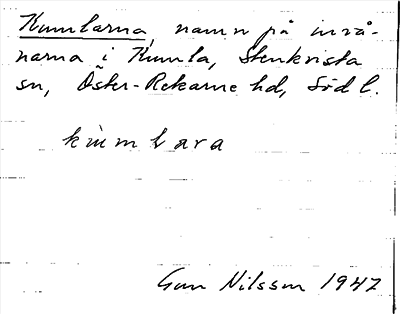 Kumlarna, namn på invå-
narna i Kumla, Stenkvista
sn, Öster-Rekarne hd, Söd l.
kumlara
Gun Nilsson 1947